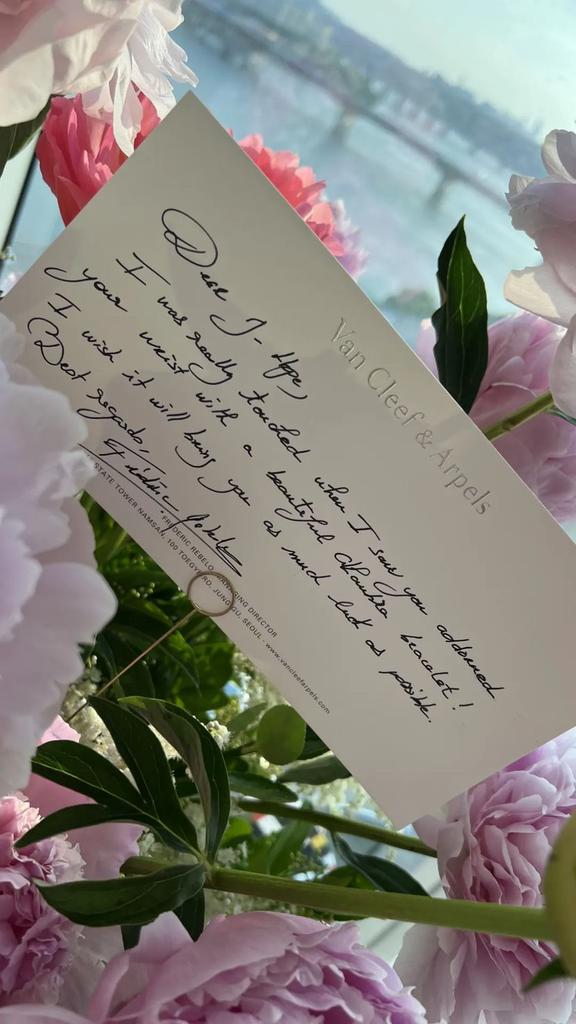 Van Cleef & Arpels
Dear J-Hope,
I was really touched when I saw you adorned
your wrist with a beautiful Alhambra bracelet!
I wish it will bring you as much luck as possible.
Best regards,
FREDERIC REBELO, DIRECTOR
STATE TOWER NAMSAN, 100 TOEGYE-RO, JUNG-GU, SEOUL - www.vancleefarpels.com